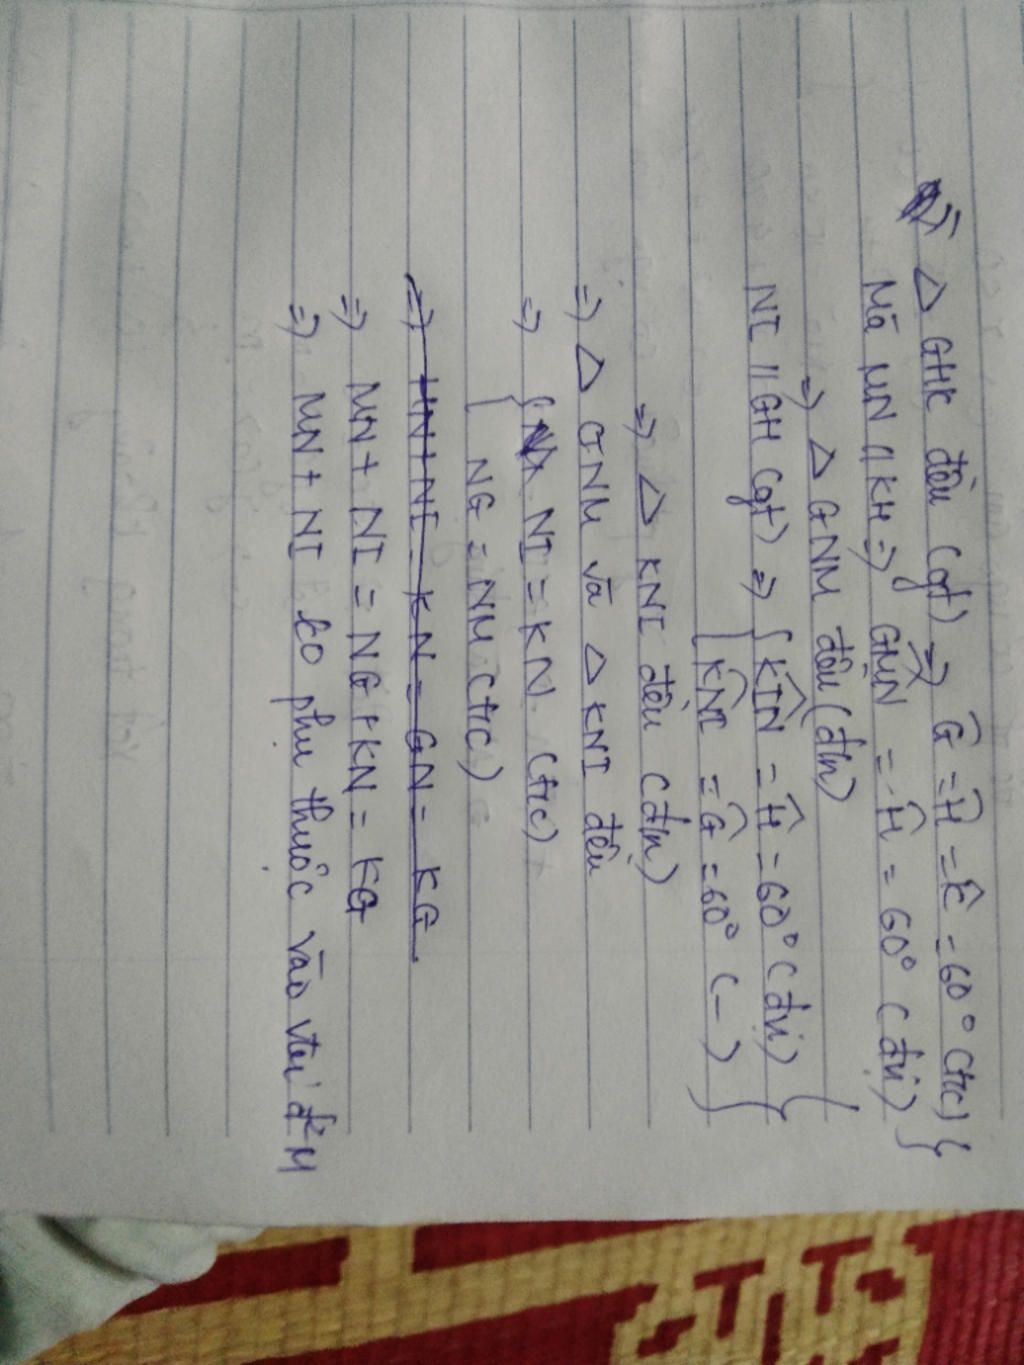 △ GHK đều (gt) ⇒ Ĝ = Ĥ = K̂ = 60° (t/c) }
Mà MN // KH ⇒ GM̂N = Ĥ = 60° (đvị) }
⇒ △ GNM đều (đ/n)
NI // GH (gt) ⇒ { KÎN = Ĥ = 60° (đvị) }
{ KN̂I = Ĝ = 60° (–) }
⇒ △ KNI đều (đ/n)
⇒ △ GNM và △ KNI đều
⇒ { NI = KN (t/c)
{ NG = NM (t/c)
⇒ MN + NI = KN = GN = KG.
⇒ MN + NI = NG + KN = KG
⇒ MN + NI ko phụ thuộc vào vtrí đ² M